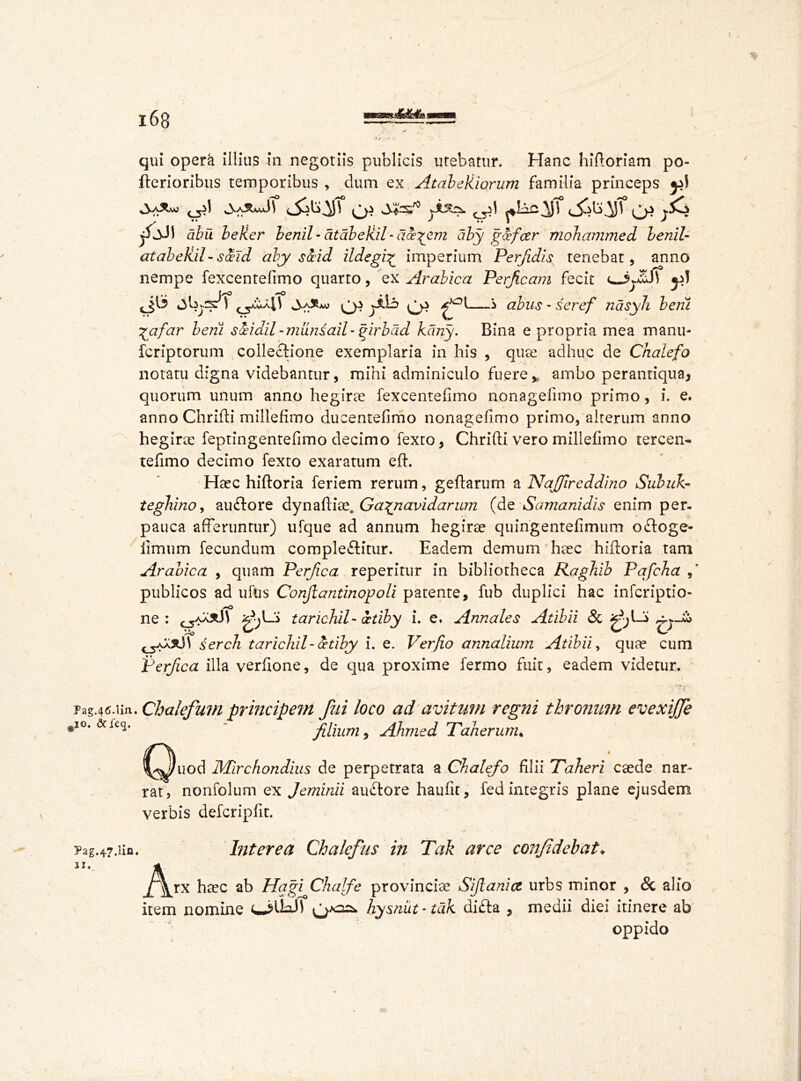 168
qui operâ illius in negotiis publicis utebatur. Hanc hiſtoriam po-
ſterioribus temporibus , dum ex Atabekiorum familia princeps ابو
بكر بن الاتابك الاعظم ابى جعفر محمد بن الاتابك السعيد ابى سعيد
ابلدكز abü beker benil-ätäbekil-aäzem äby gäfær mohammed benil-
atabekil-säid aby säid ildegiz imperium Perſidis tenebat, anno
nempe ſexcenteſimo quarto, ex Arabica Perſicam fecit ابو الشرف
ناصح بن ظفر بن سعيد المنشى الجرباد قانى abus-seref näsyh beni
zafar beni säidil-münsail-girbäd käny. Bina e propria mea manu-
ſcriptorum collectione exemplaria in his , quæ adhuc de Chalefo
notatu digna videbantur, mihi adminiculo fuere, ambo perantiqua,
quorum unum anno hegiræ ſexcenteſimo nonageſimo primo, i. e.
anno Chriſti milleſimo ducenteſimo nonageſimo primo, alterum anno
hegiræ ſeptingenteſimo decimo ſexto, Chriſti vero milleſimo tercen-
teſimo decimo ſexto exaratum eſt.
Hæc hiſtoria ſeriem rerum, geſtarum a Naſſireddino Subuk-
teghino, auctore dynaſtiæ Gaznavidarum (de Samanidis enim per-
pauca afferuntur) uſque ad annum hegiræ quingenteſimum octoge-
ſimum ſecundum complectitur. Eadem demum hæc hiſtoria tam
Arabica , quam Perſica reperitur in bibliotheca Raghib Paſcha ,
publicos ad uſus Conſtantinopoli patente, ſub duplici hac inſcriptio-
ne : تاريخ العتبى tarichil-ætiby i. e. Annales Atibii & شرح تاريخ
العتبى serch tarichil-ætiby i. e. Verſio annalium Atibii, quæ cum
Perſica illa verſione, de qua proxime ſermo fuit, eadem videtur.
Pag.46.lin. Chalefum principem ſui loco ad avitum regni thronum evexiſſe
10. & ſeq. filium, Ahmed Taherum.
Quod Mirchondius de perpetrata a Chalefo filii Taheri cæde nar-
rat, nonſolum ex Jeminii auctore hauſit, ſed integris plane ejusdem
verbis deſcripſit.
Pag.47.lin. Interea Chalefus in Tak arce confidebat.
11.
Arx hæc ab Hagi Chalfe provinciæ Siſtaniæ urbs minor , & alio
item nomine حصن الطاق hysnüt-täk dicta , medii diei itinere ab
oppido